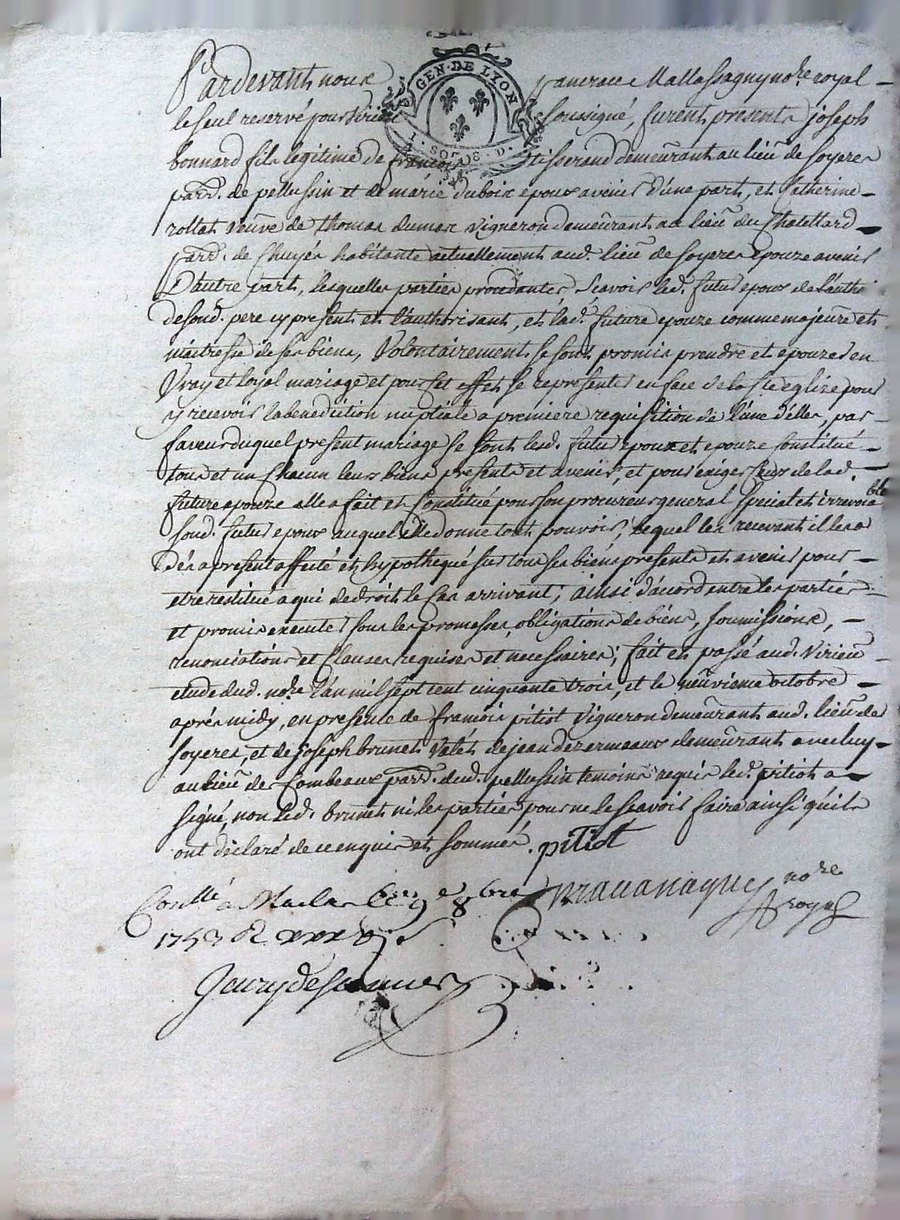 GEN. DE LYON
SOLS 8 D.
Pardevant nous pancrace Mallassagny no.re royal
le seul reservé pour Virieu soussigné, furent presents joseph
bonnard fils legitime de francois tisserand demeurant au lieu de soyeres
parr. de pellussin et de marie dubois epoux avenir d'une part, et Catherine
rollat veuve de thomas dumas vigneron demeurant au lieu du Chatellard
parr. de Chuyer habitante actuellement aud. lieu de soyeres epouze avenir
D'autre part, lesquelles parties procedantes scavoir led. futur epoux de l'authé
de sond. pere cy present et l'authorisant, et lad. future epouze comme majeure et
maitresse de ses biens, Volontairement se sont promis prendre et epouzer en
Vray et loyal mariage et pour cet effet se representer en face de la ste eglise pour
y recevoir la benediction nuptiale a premiere requisition de l'une d'elles, par
faveur duquel present mariage se sont led. futur epoux et epouze Constitué
tous et un chacun leurs biens presents et avenir, et pour exiger ceux de lad.
future epouze elle a fait et Constitué pour son procureur general special et irrevocable
sond. futur epoux auquel elle donne tout pouvoir, lequel les recevant il les a
Dés apresent affecté et hypothequé sur tous ses biens presents et avenir pour
etre restitué a qui de droit le cas arrivant; ainsi d'acord entre les parties
et promis executer sous les promesses, obligations de biens, soumissions,
renonciations et clauses requises et necessaires; fait et passé aud. Virieu
etude dud. no.re l'an mil sept cent cinquante trois, et le neuvieme octobre
après midy, en presence de francois pitiot Vigneron demeurant aud. lieu de
soyeres, et de joseph brunet Valet de jean dezermeaux demeurant avec luy
au lieu de Combeaux parr. dud. pellussin temoins requis led. pitiot a
signé, non led. brunet ni les parties pour ne le scavoir faire ainsi qu'ils
ont déclaré de ce enquis et sommés. pitiot
Conllé a Maclas le 9e 8bre no.re
1753 R royal